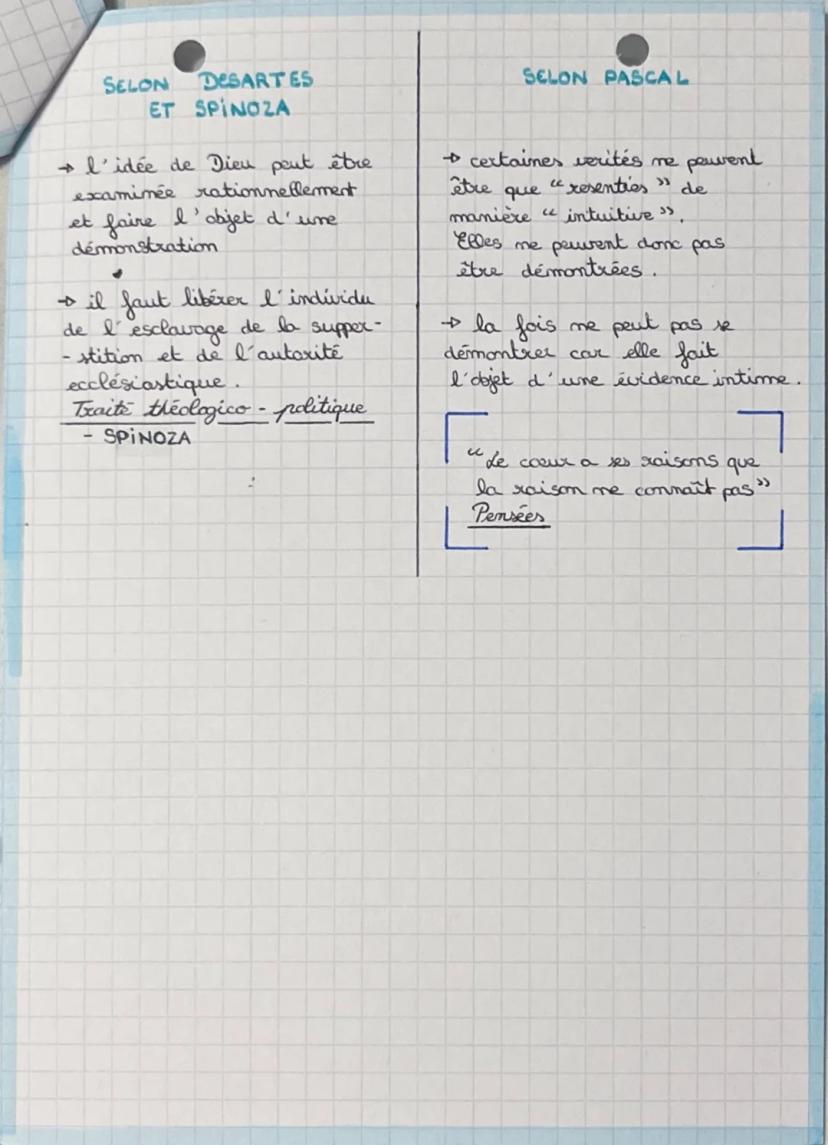 SELON DESARTES
ET SPINOZA
→ l'idée de Dieu peut être
examinée rationnellement
et faire l'objet d'une
démonstration
→ il faut libérer l'individu
de l'esclavage de la supper-
-stition et de l'autorité
ecclésiastique.
Traité théologico-politique
- SPINOZA
SELON PASCAL
→ certaines verités ne peuvent
être que "resenties" de
manière "intuitive".
Elles ne peuvent donc pas
être démontrées.
→ la fois ne peut pas se
démontrer car elle fait
l'objet d'une évidence intime.
"Le cœur a ses raisons que
la raison ne connaît pas"
Pensées